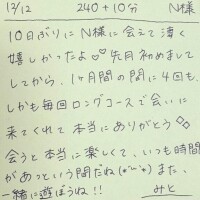 12/12 240+10分 N様
10日ぶりにN様に会えて凄く
嬉しかったよ♡♡先月初めまして
してから、1ヶ月間の間に4回も、
しかも毎回ロングコースで会いに
来てくれて本当にありがとう◇◇
会うと本当に楽しくて、いつも時間
があっという間だね(*´˘`*)また、
一緒に遊ぼうね!!
みと